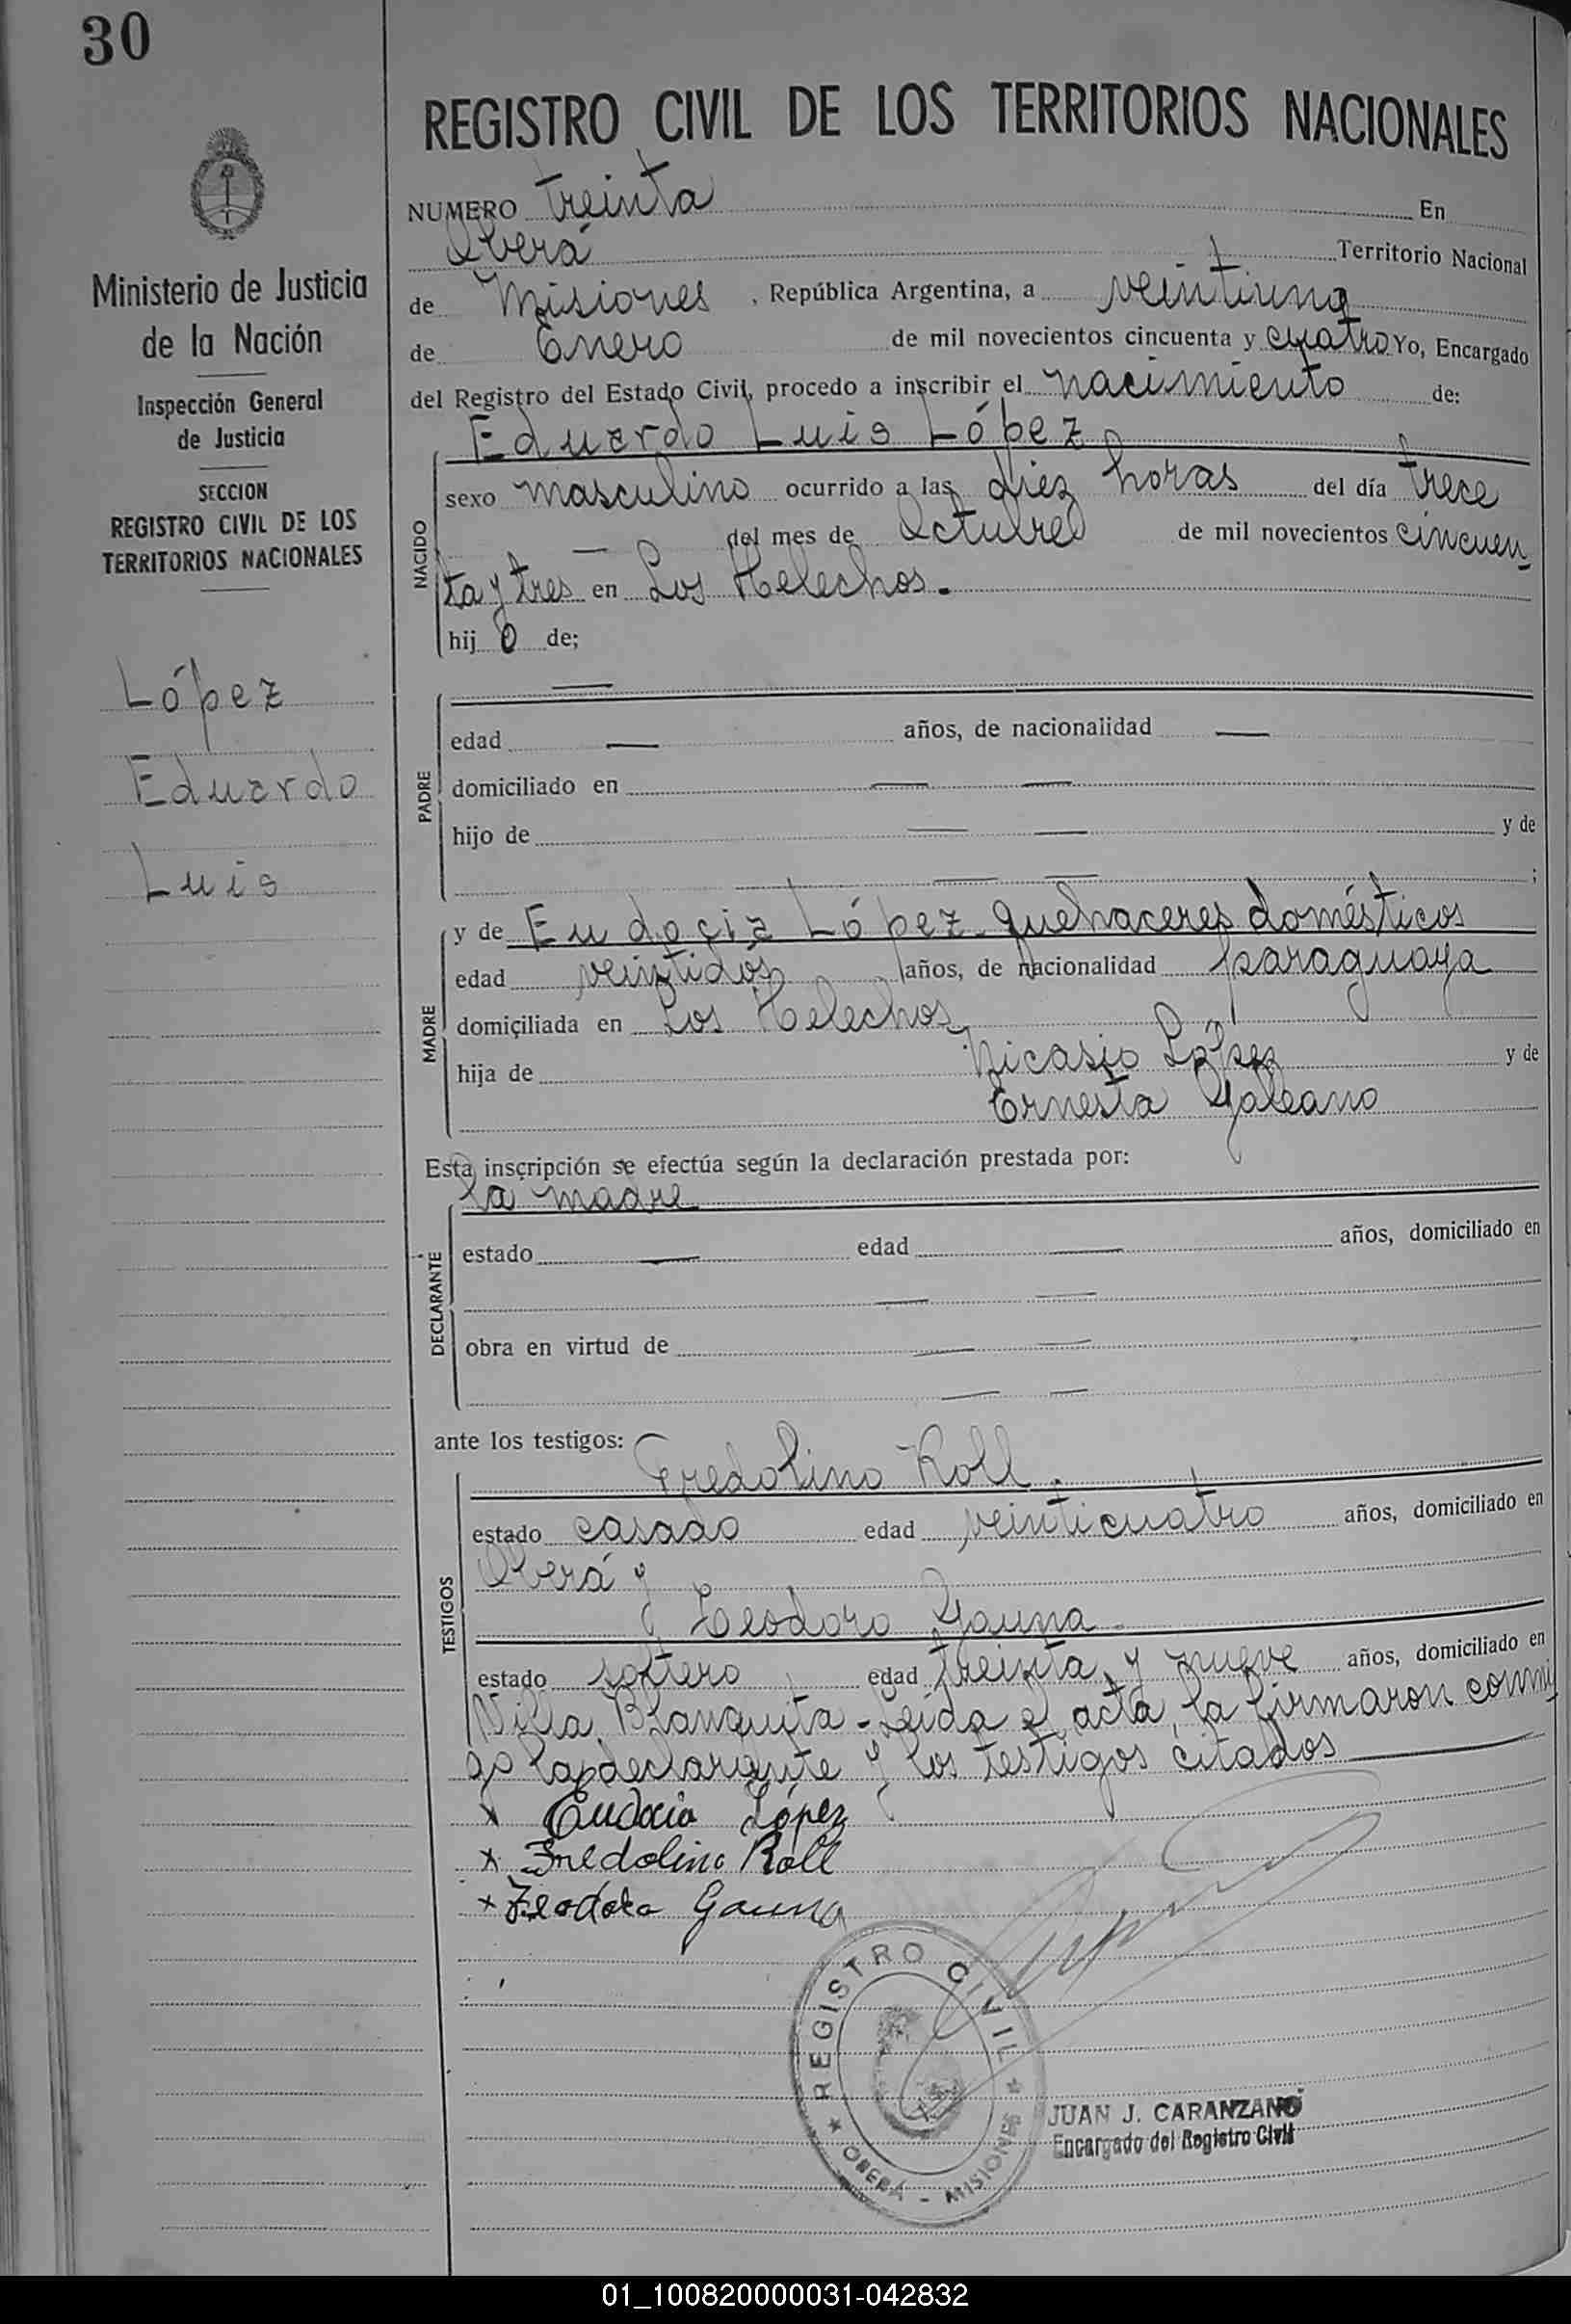 30
REGISTRO CIVIL DE LOS TERRITORIOS NACIONALES
Ministerio de Justicia
de la Nación
Inspección General
de Justicia
SECCION
REGISTRO CIVIL DE LOS
TERRITORIOS NACIONALES
López
Eduardo
Luis
NUMERO treinta En
Oberá Territorio Nacional
de Misiones, República Argentina, a veintiuno
de Enero de mil novecientos cincuenta y cuatro Yo, Encargado
del Registro del Estado Civil, procedo a inscribir el nacimiento de:
NACIDO
Eduardo Luis López
sexo masculino ocurrido a las diez horas del día trece
— del mes de Octubre de mil novecientos cincuen
ta y tres en Los Helechos.
hijo de;
PADRE
—
edad — años, de nacionalidad —
domiciliado en — —
hijo de — — y de
— — ;
MADRE
y de Eudocia López - quehaceres domésticos
edad veintidós años, de nacionalidad paraguaya
domiciliada en Los Helechos,
hija de Nicasio López y de
Ernesta Galeano
Esta inscripción se efectúa según la declaración prestada por:
DECLARANTE
la madre
estado — edad — años, domiciliado en
— —
obra en virtud de — —
— —
ante los testigos:
TESTIGOS
Fredolino Roll.
estado casado edad veinticuatro años, domiciliado en
Oberá y
Teodoro Gauna -
estado soltero edad treinta y nueve años, domiciliado en
Villa Blanquita - Leída el acta, la firmaron conmi
go la declarante y los testigos citados —
x Eudocia López
x Fredolino Roll
x Teodoro Gauna
REGISTRO CIVIL
OBERÁ - MISIONES
JUAN J. CARANZANO
Encargado del Registro Civil
01_100820000031-042832